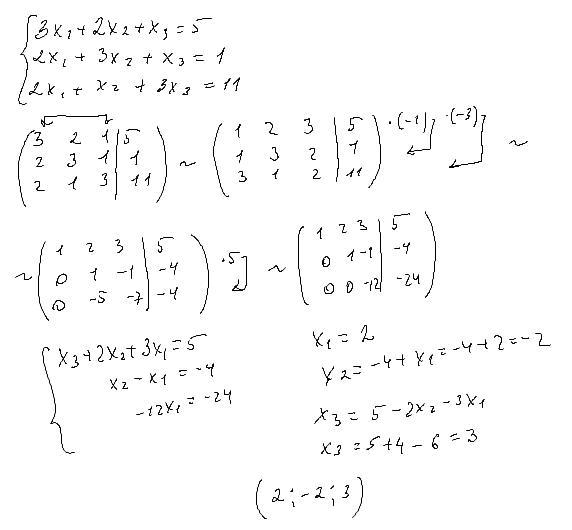 3x₁ + 2x₂ + x₃ = 5
2x₁ + 3x₂ + x₃ = 1
2x₁ + x₂ + 3x₃ = 11
(3 2 1 | 5) ~ (1 2 3 | 5) ·(-1) ·(-3) ~
(2 3 1 | 1) (1 3 2 | 1)
(2 1 3 | 11) (3 1 2 | 11)
~ (1 2 3 | 5) ·5 ~ (1 2 3 | 5)
(0 1 -1 | -4) (0 1 -1 | -4)
(0 -5 -7 | -4) (0 0 -12 | -24)
x₃ + 2x₂ + 3x₁ = 5
x₂ - x₁ = -4
-12x₁ = -24
x₁ = 2
x₂ = -4 + x₁ = -4 + 2 = -2
x₃ = 5 - 2x₂ - 3x₁
x₃ = 5 + 4 - 6 = 3
(2; -2; 3)